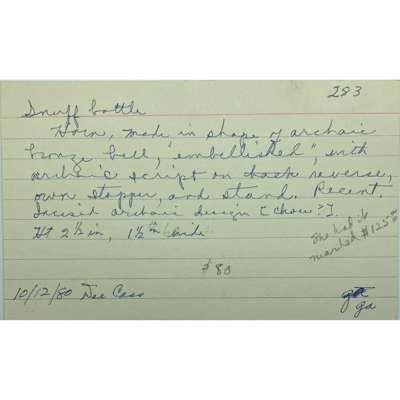 283
Snuff bottle
Horn, made in shape of archaic
bronze bell, "embellished", with
archaic script on back reverse,
own stopper, and stand. Recent.
Incised archaic design [Chou?].
Ht 2 1/2 in, 1 1/2 in wide
She had it
marked $125.00
$80
10/12/80 Dee Cass
ga
ga